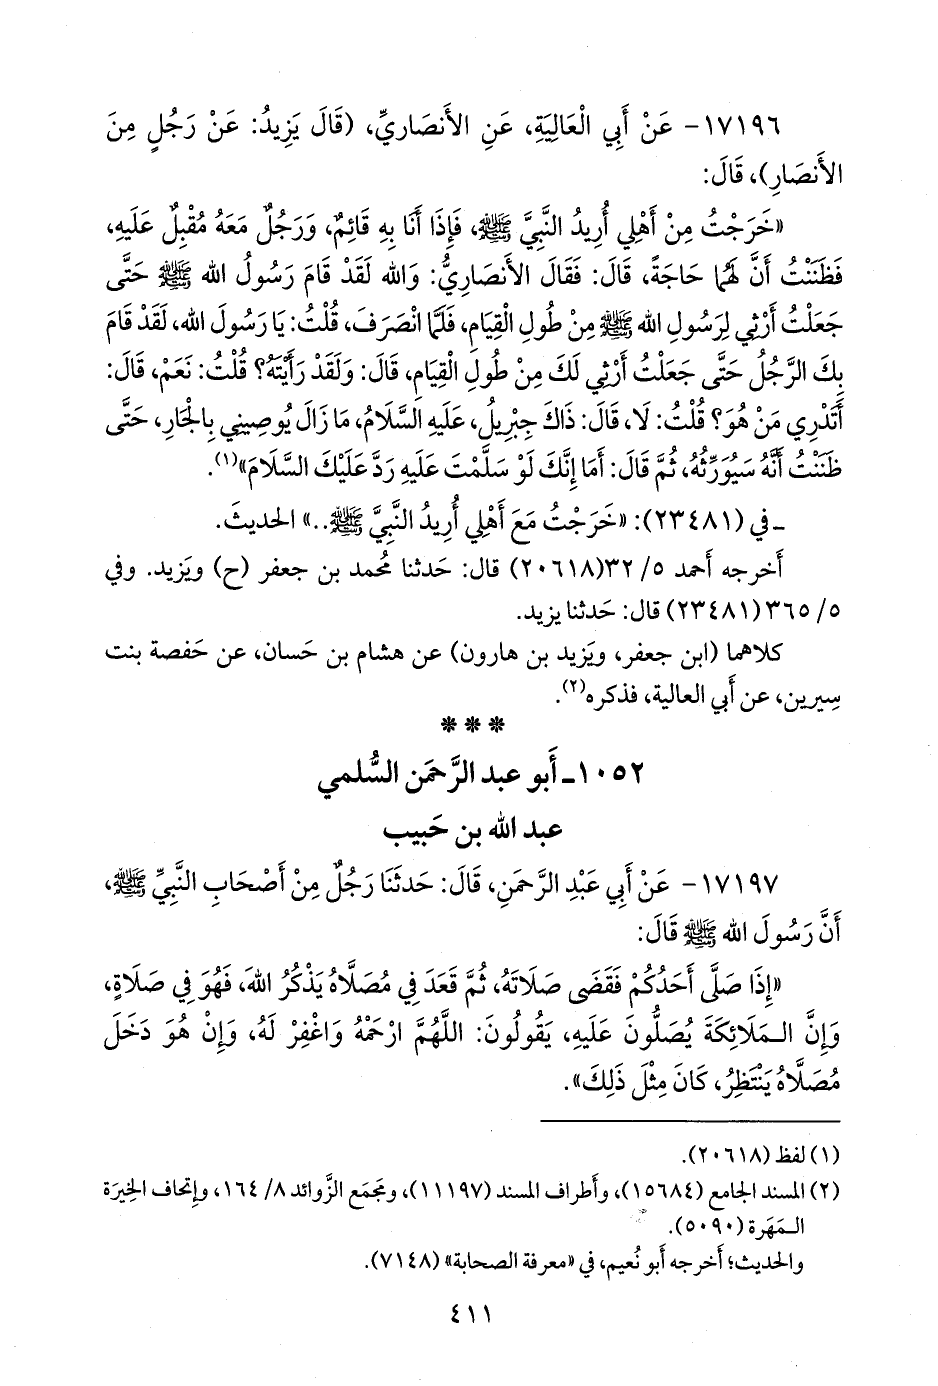 ١٧١٩٦- عَنْ أَبِي الْعَالِيَةِ، عَنِ الأَنصَارِيِّ، (قَالَ يَزِيدُ: عَنْ رَجُلٍ مِنَ
الأَنصَارِ)، قَالَ:
«خَرَجْتُ مِنْ أَهْلِي أُرِيدُ النَّبِيَّ ﷺ، فَإِذَا أَنَا بِهِ قَائِمٌ، وَرَجُلٌ مَعَهُ مُقْبِلٌ عَلَيهِ،
فَظَنَنْتُ أَنَّ لَهُمَا حَاجَةً، قَالَ: فَقَالَ الأَنصَارِيُّ: وَالله لَقَدْ قَامَ رَسُولُ الله ﷺ حَتَّى
جَعَلْتُ أَرْثِي لِرَسُولِ الله ﷺ مِنْ طُولِ الْقِيَامِ، فَلَمَّا انْصَرَفَ، قُلْتُ: يَا رَسُولَ الله، لَقَدْ قَامَ
بِكَ الرَّجُلُ حَتَّى جَعَلْتُ أَرْثِي لَكَ مِنْ طُولِ الْقِيَامِ، قَالَ: وَلَقَدْ رَأَيْتَهُ؟ قُلْتُ: نَعَمْ، قَالَ:
أَتَدْرِي مَنْ هُوَ؟ قُلْتُ: لَا، قَالَ: ذَاكَ جِبْرِيلُ، عَلَيهِ السَّلَامُ، مَا زَالَ يُوصِينِي بِالْجَارِ، حَتَّى
ظَنَنْتُ أَنَّهُ سَيُوَرِّثُهُ، ثُمَّ قَالَ: أَمَا إِنَّكَ لَوْ سَلَّمْتَ عَلَيهِ رَدَّ عَلَيْكَ السَّلَامَ»(١).
ـ في (٢٣٤٨١): «خَرَجْتُ مَعَ أَهْلِي أُرِيدُ النَّبِيَّ ﷺ..» الحديثَ.
أخرجه أحمد ٥/ ٣٢(٢٠٦١٨) قال: حَدثنا مُحمد بن جعفر (ح) ويَزيد. وفي
٥/ ٣٦٥(٢٣٤٨١) قال: حَدثنا يزيد.
كلاهما (ابن جعفر، ويَزيد بن هارون) عن هشام بن حَسان، عن حَفصة بنت
سِيرين، عن أَبي العالية، فذكره(٢).
* * *
١٠٥٢ـ أَبو عبد الرَّحمَن السُّلمي
عبد الله بن حَبيب
١٧١٩٧- عَنْ أَبِي عَبْدِ الرَّحمَنِ، قَالَ: حَدثَنَا رَجُلٌ مِنْ أَصْحَابِ النَّبِيِّ ﷺ،
أَنَّ رَسُولَ الله ﷺ قَالَ:
«إِذَا صَلَّى أَحَدُكُمْ فَقَضَى صَلَاتَهُ، ثُمَّ قَعَدَ فِي مُصَلَّاهُ يَذْكُرُ اللهَ، فَهُوَ فِي صَلَاةٍ،
وَإِنَّ الـمَلَائِكَةَ يُصَلُّونَ عَلَيهِ، يَقُولُونَ: اللَّهُمَّ ارْحَمْهُ وَاغْفِرْ لَهُ، وَإِنْ هُوَ دَخَلَ
مُصَلَّاهُ يَنْتَظِرُ، كَانَ مِثْلَ ذَلِكَ».
(١) لفظ (٢٠٦١٨).
(٢) المسند الجامع (١٥٦٨٤)، وأَطراف المسند (١١١٩٧)، ومَجمَع الزَّوائد ٨/ ١٦٤، وإتحاف الخِيرَة
الـمَهَرة (٥٠٩٠).
والحديث؛ أَخرجه أَبو نُعيم، في «معرفة الصحابة» (٧١٤٨).
٤١١